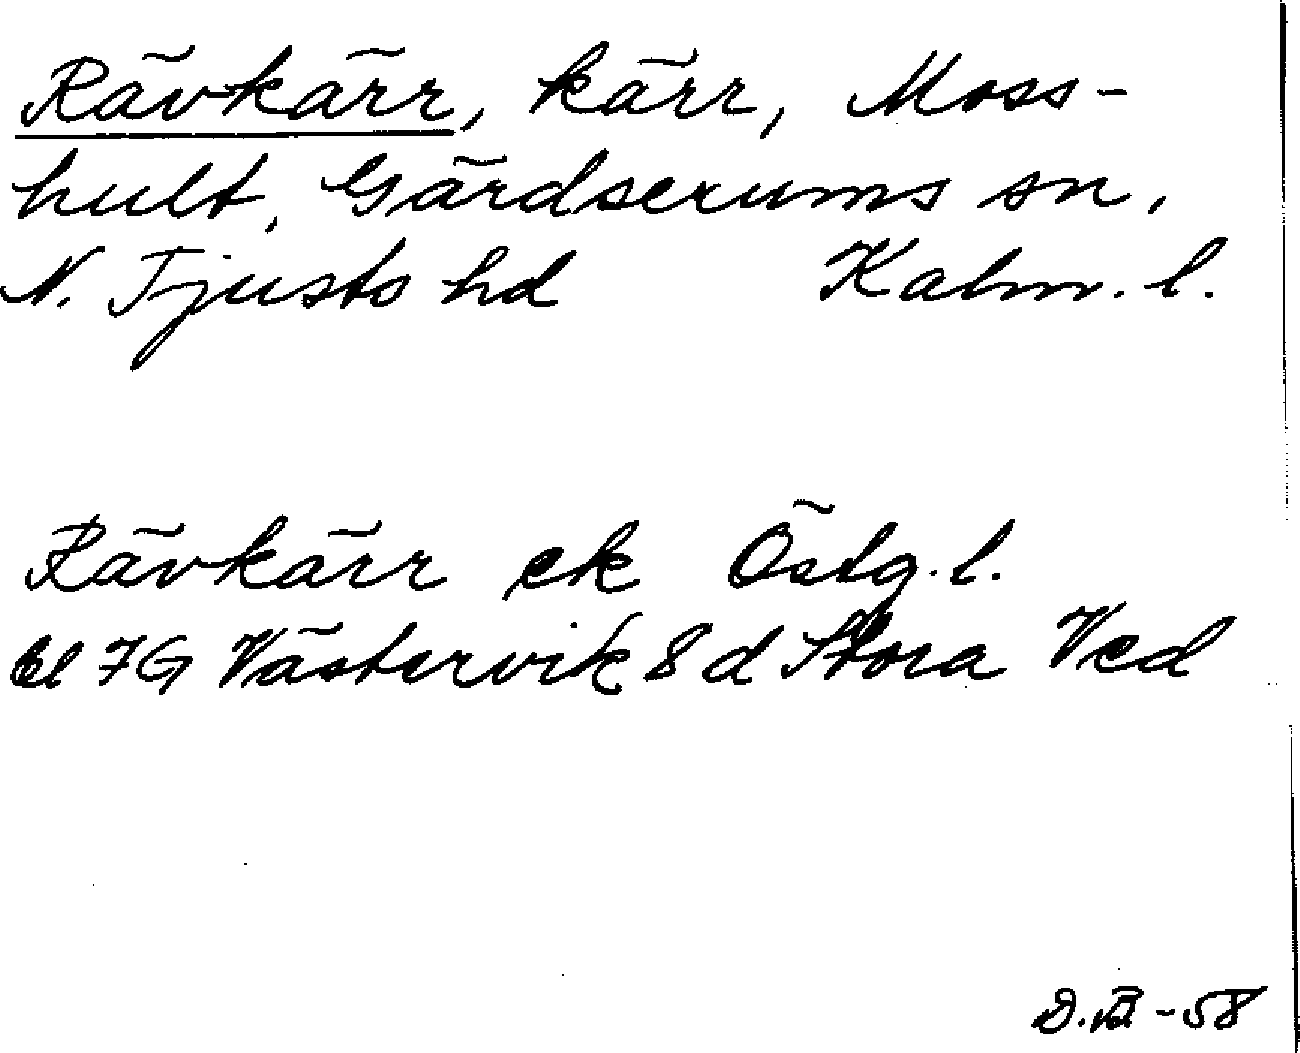 Rävkärr, kärr, Moss-
hult, Gärdserums sn,
N. Tjusts hd Kalm. l.
Rävkärr ek Östg. l.
bl 7G Västervik 8 d Stora Ved
D. VII -58